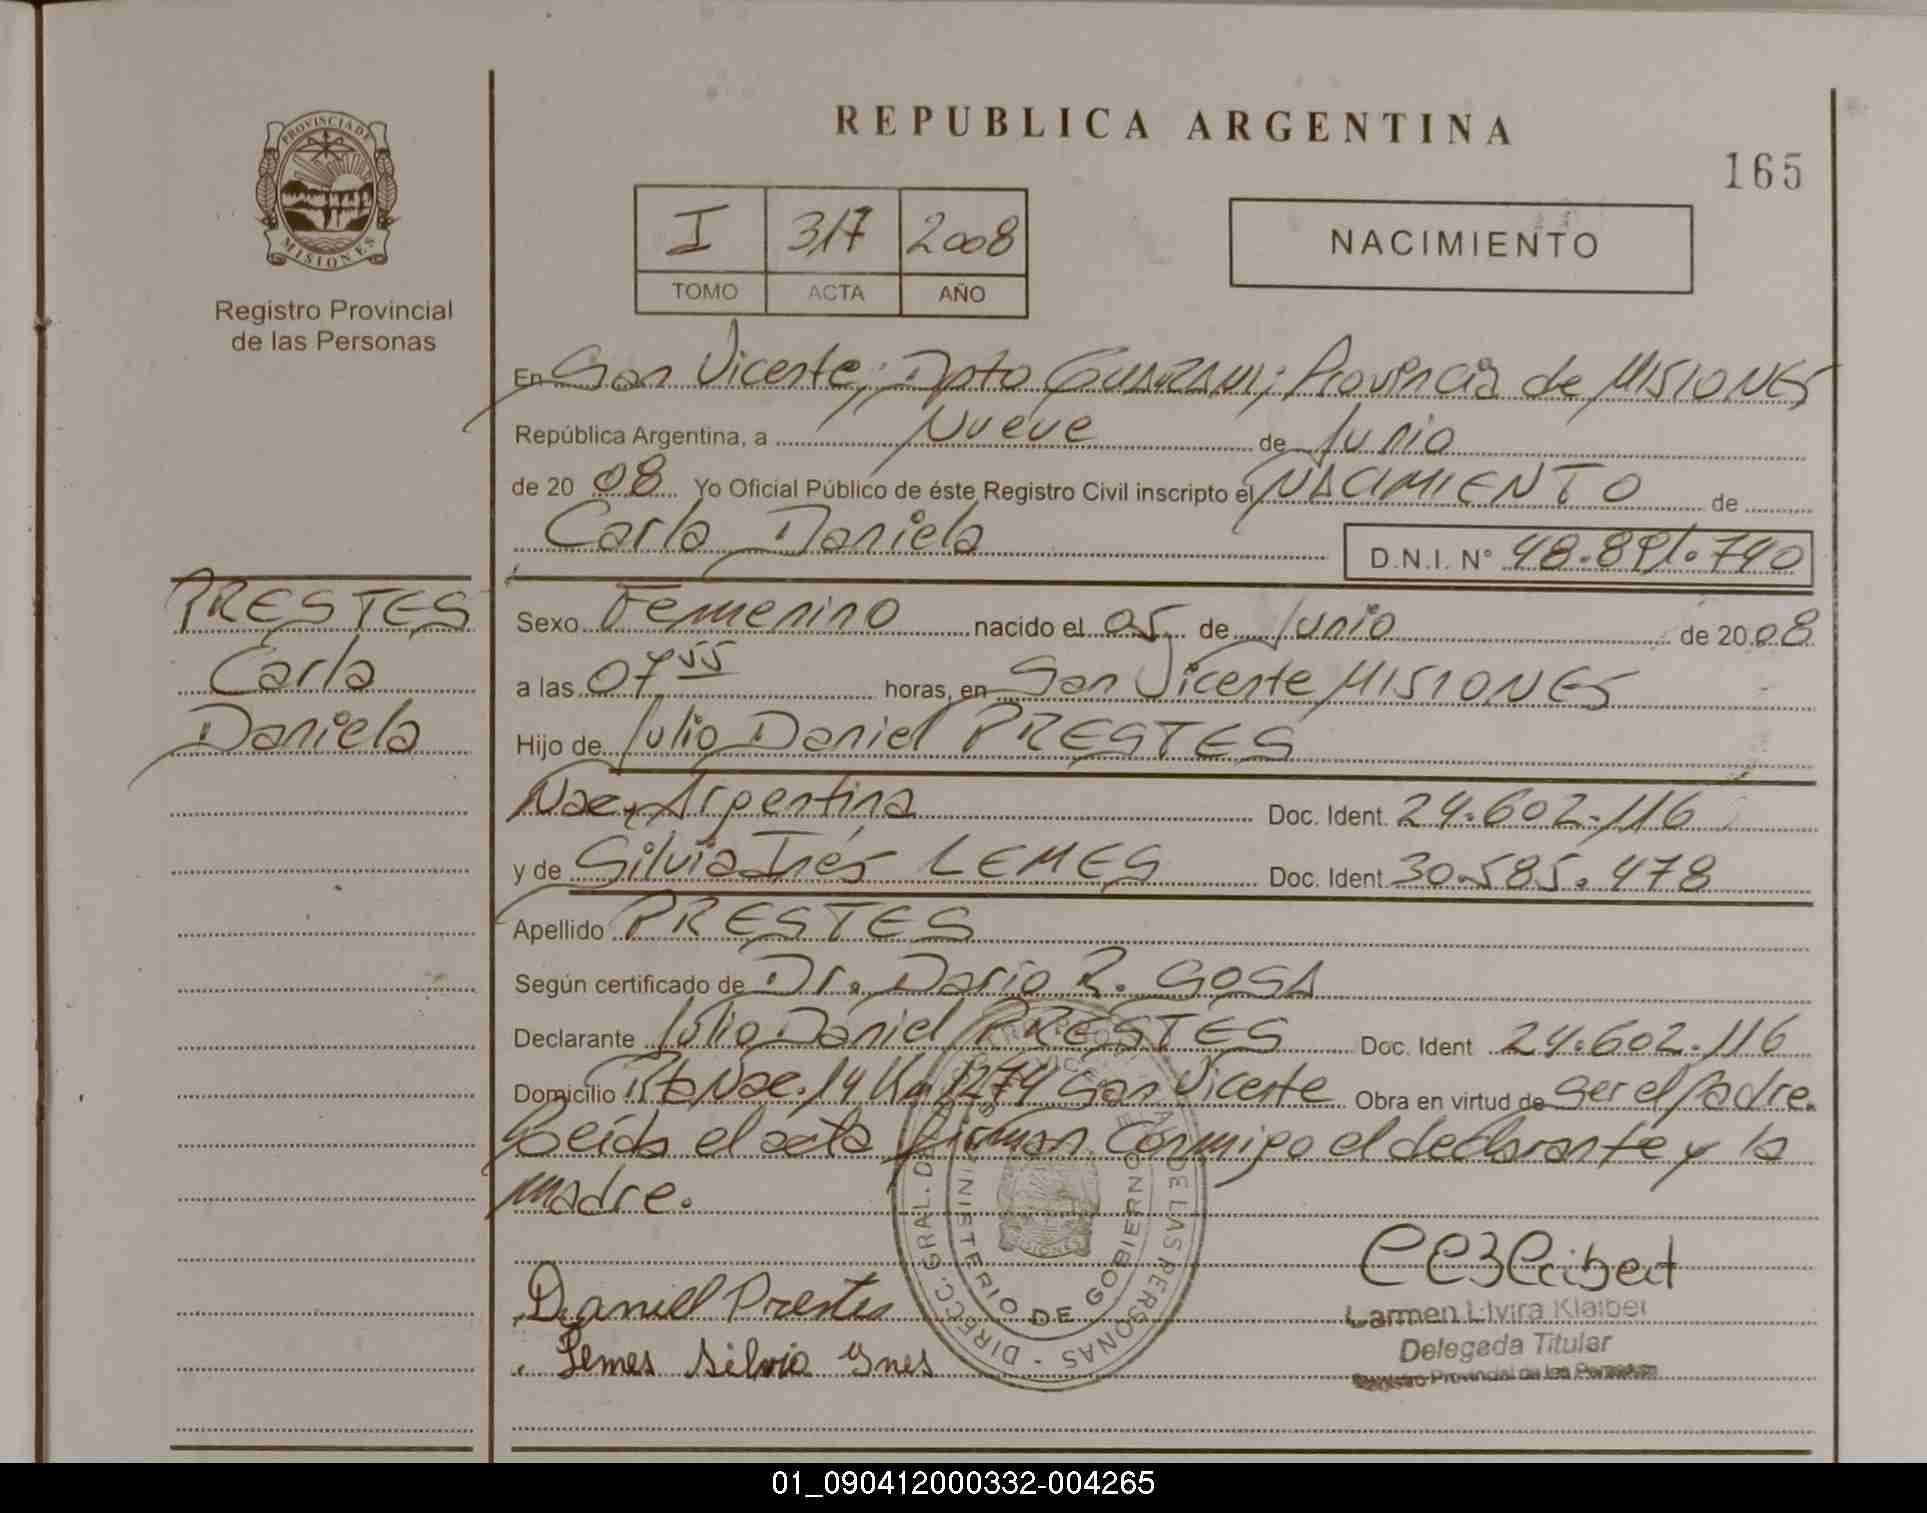 REPUBLICA ARGENTINA
165
PROVINCIA DE
MISIONES
Registro Provincial
de las Personas
I 317 2008
TOMO ACTA AÑO
NACIMIENTO
En San Vicente; Dpto Guaraní; Provincia de MISIONES
República Argentina, a Nueve de Junio
de 20 08 Yo Oficial Público de éste Registro Civil inscripto el NACIMIENTO de
Carla Daniela D.N.I. N° 48.891.740
PRESTES
Carla
Daniela
Sexo Femenino nacido el 05 de Junio de 20 08
a las 07 55 horas, en San Vicente MISIONES
Hijo de Julio Daniel PRESTES
Nac. Argentina Doc. Ident. 24.602.116
y de Silvia Inés LEMES Doc. Ident. 30.585.478
Apellido PRESTES
Según certificado de Dr. Dario R. SOSA
Declarante Julio Daniel PRESTES Doc. Ident 24.602.116
Domicilio Rta Nac. 14 Km 1274 San Vicente Obra en virtud de Ser el padre.
Leída el acta firman conmigo el declarante y la
madre.
Daniel Prestes
Lemes Silvia Ynes
DIRECC. GRAL. DE LAS PERSONAS
MINISTERIO DE GOBIERNO
MISIONES
Carmen Elvira Klaiber
Delegada Titular
Registro Provincial de las Personas
01_090412000332-004265